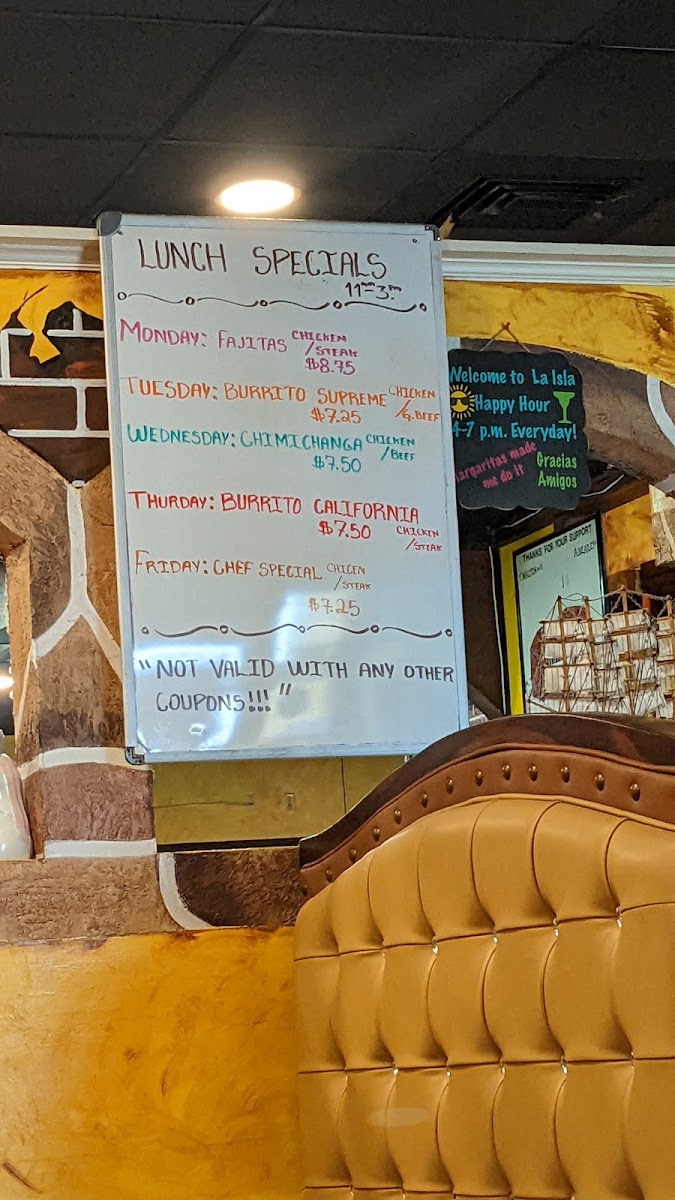 LUNCH SPECIALS
11am-3pm
MONDAY: FAJITAS CHICKEN
/STEAK
$8.75
TUESDAY: BURRITO SUPREME CHICKEN
$7.25 /G.BEEF
WEDNESDAY: CHIMICHANGA CHICKEN
$7.50 /BEEF
THURDAY: BURRITO CALIFORNIA
$7.50 CHICKEN
/STEAK
FRIDAY: CHEF SPECIAL CHICEN
/STEAK
$7.25
"NOT VALID WITH ANY OTHER
COUPONS!!!"
Welcome to La Isla
Happy Hour
4-7 p.m. Everyday!
margaritas made
me do it
Gracias
Amigos
THANKS FOR YOUR SUPPORT